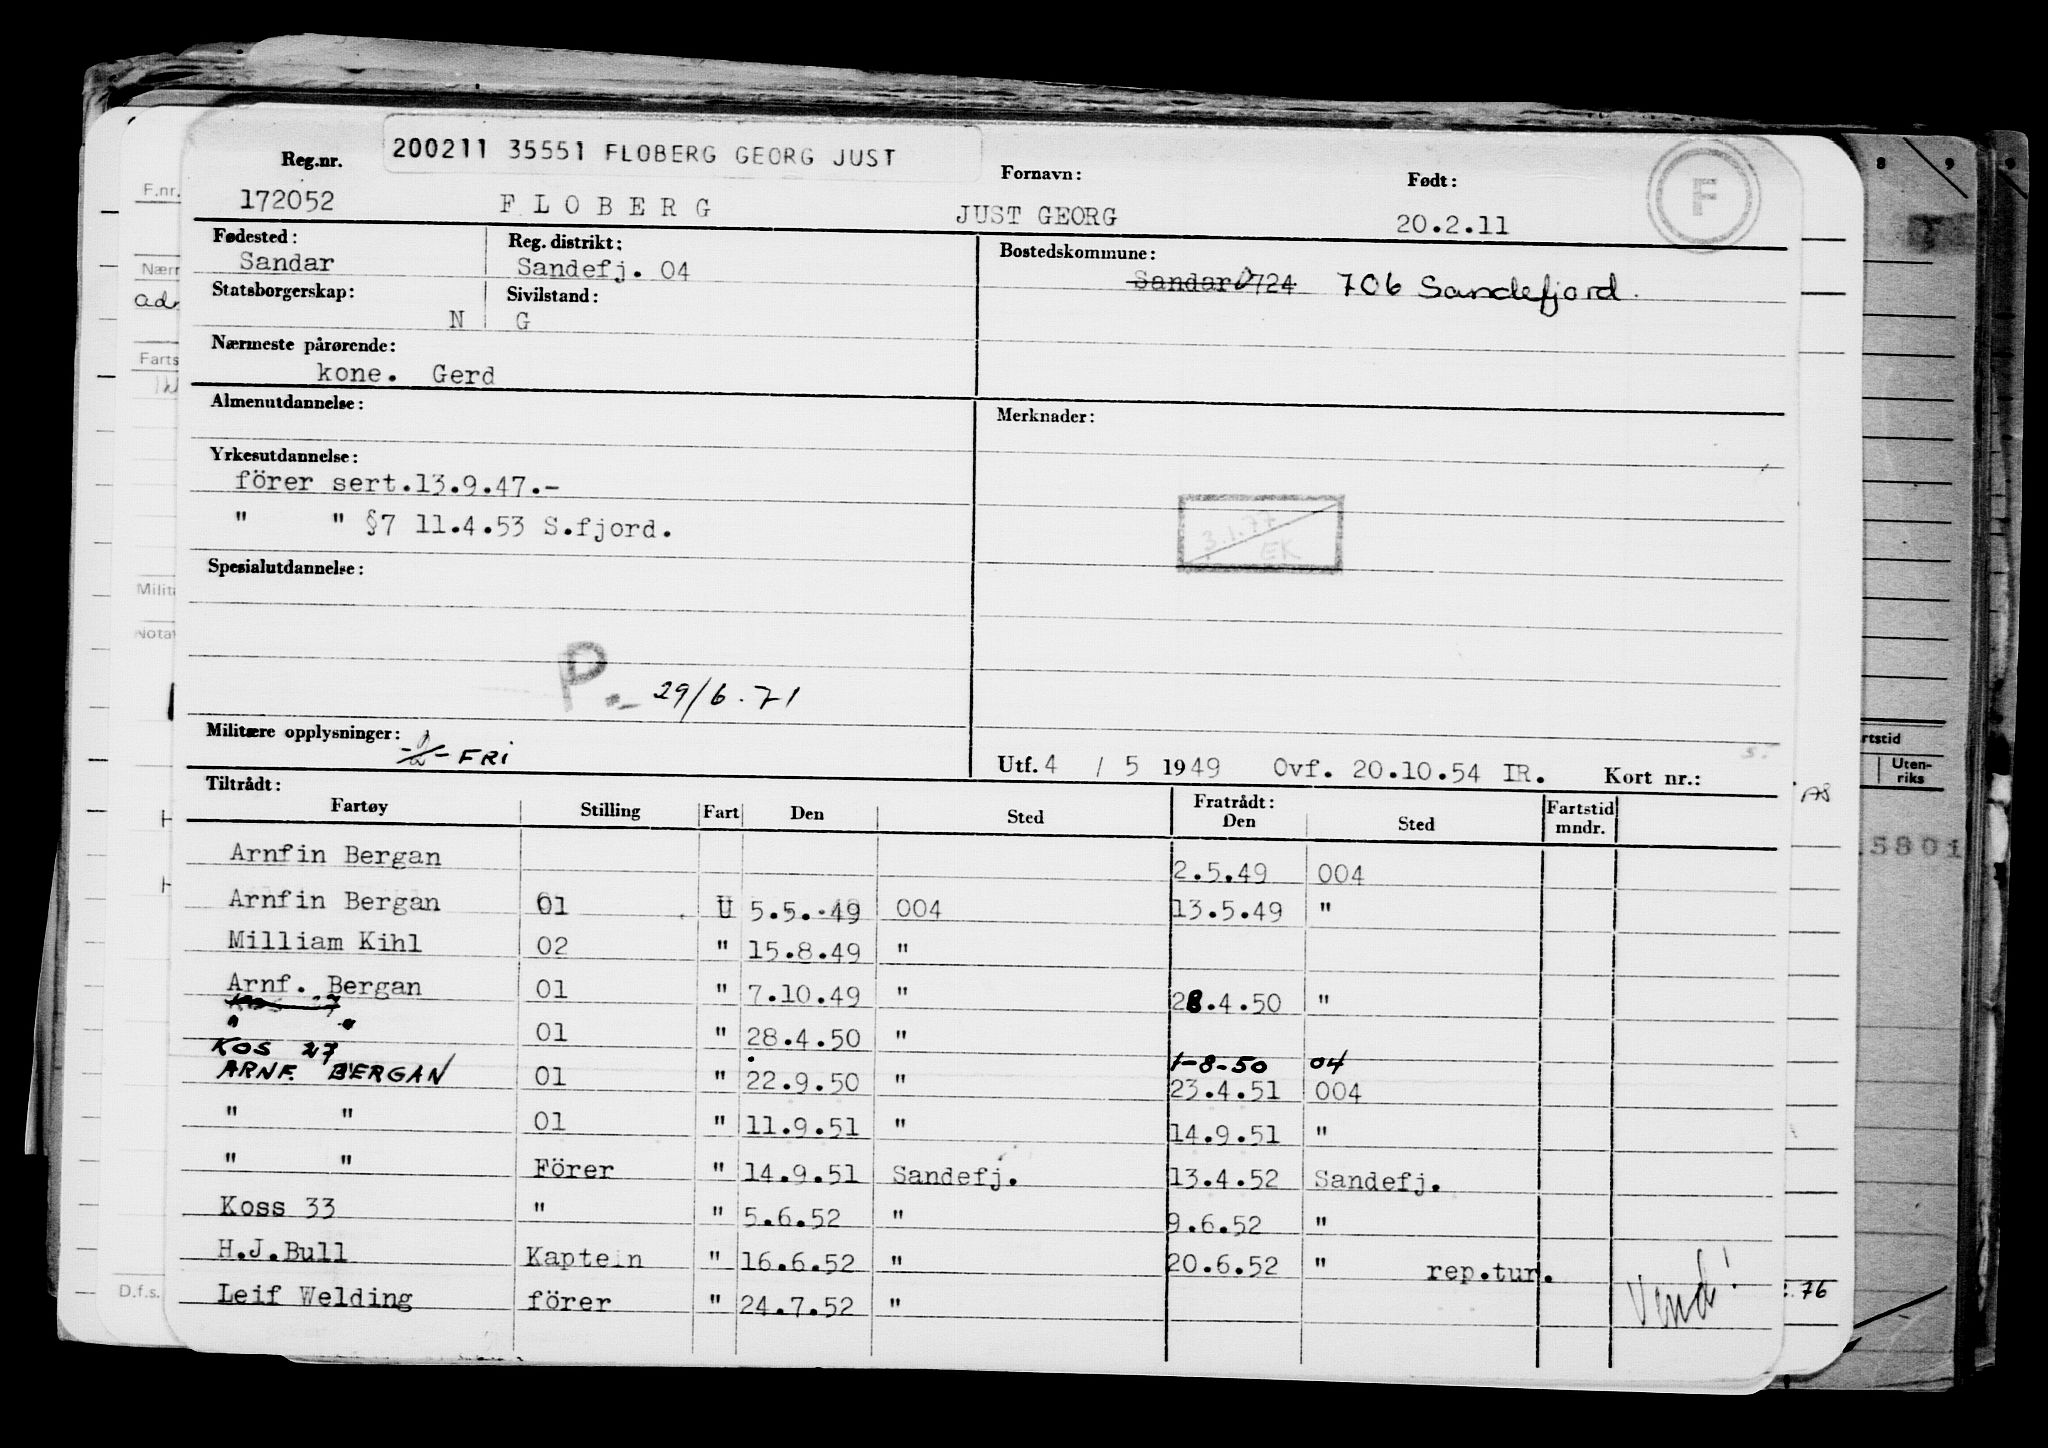 200211 35551 FLOBERG GEORG JUST
Reg.nr. Fornavn: Født: F
172052 FLOBERG JUST GEORG 20.2.11
Fødested: Reg. distrikt: Bostedskommune:
Sandar Sandefj. 04 Sandar 0724 706 Sandefjord.
Statsborgerskap: Sivilstand:
N G
Nærmeste pårørende:
kone. Gerd
Almenutdannelse: Merknader:
Yrkesutdannelse:
förer sert.13.9.47.-
" " §7 11.4.53 S.fjord.
3.1.77
EK
Spesialutdannelse:
P.- 29/6.71
Militære opplysninger: FRI
Utf. 4 / 5 1949 Ovf. 20.10.54 IR. Kort nr.:
Tiltrådt: Fratrådt:
Fartøy Stilling Fart Den Sted Den Sted Fartstid mndr.
Arnfin Bergan 2.5.49 004
Arnfin Bergan 01 U 5.5.49 004 13.5.49 "
Milliam Kihl 02 " 15.8.49 "
Arnf. Bergan 01 " 7.10.49 " 28.4.50 "
" " 01 " 28.4.50 "
KOS 27 1-8-50 04
ARNF. BERGAN 01 " 22.9.50 " 23.4.51 004
" " 01 " 11.9.51 " 14.9.51 "
" " Förer " 14.9.51 Sandefj. 13.4.52 Sandefj.
Koss 33 " " 5.6.52 " 9.6.52 "
H.J.Bull Kaptein " 16.6.52 " 20.6.52 " rep.tur.
Leif Welding förer " 24.7.52 "
Vend!
F.nr.
Nærm
adr
Farts
Milit
Notat
H
H
D.f.s.
8 9
rtstid
Uten-
riks
AS
5801
76